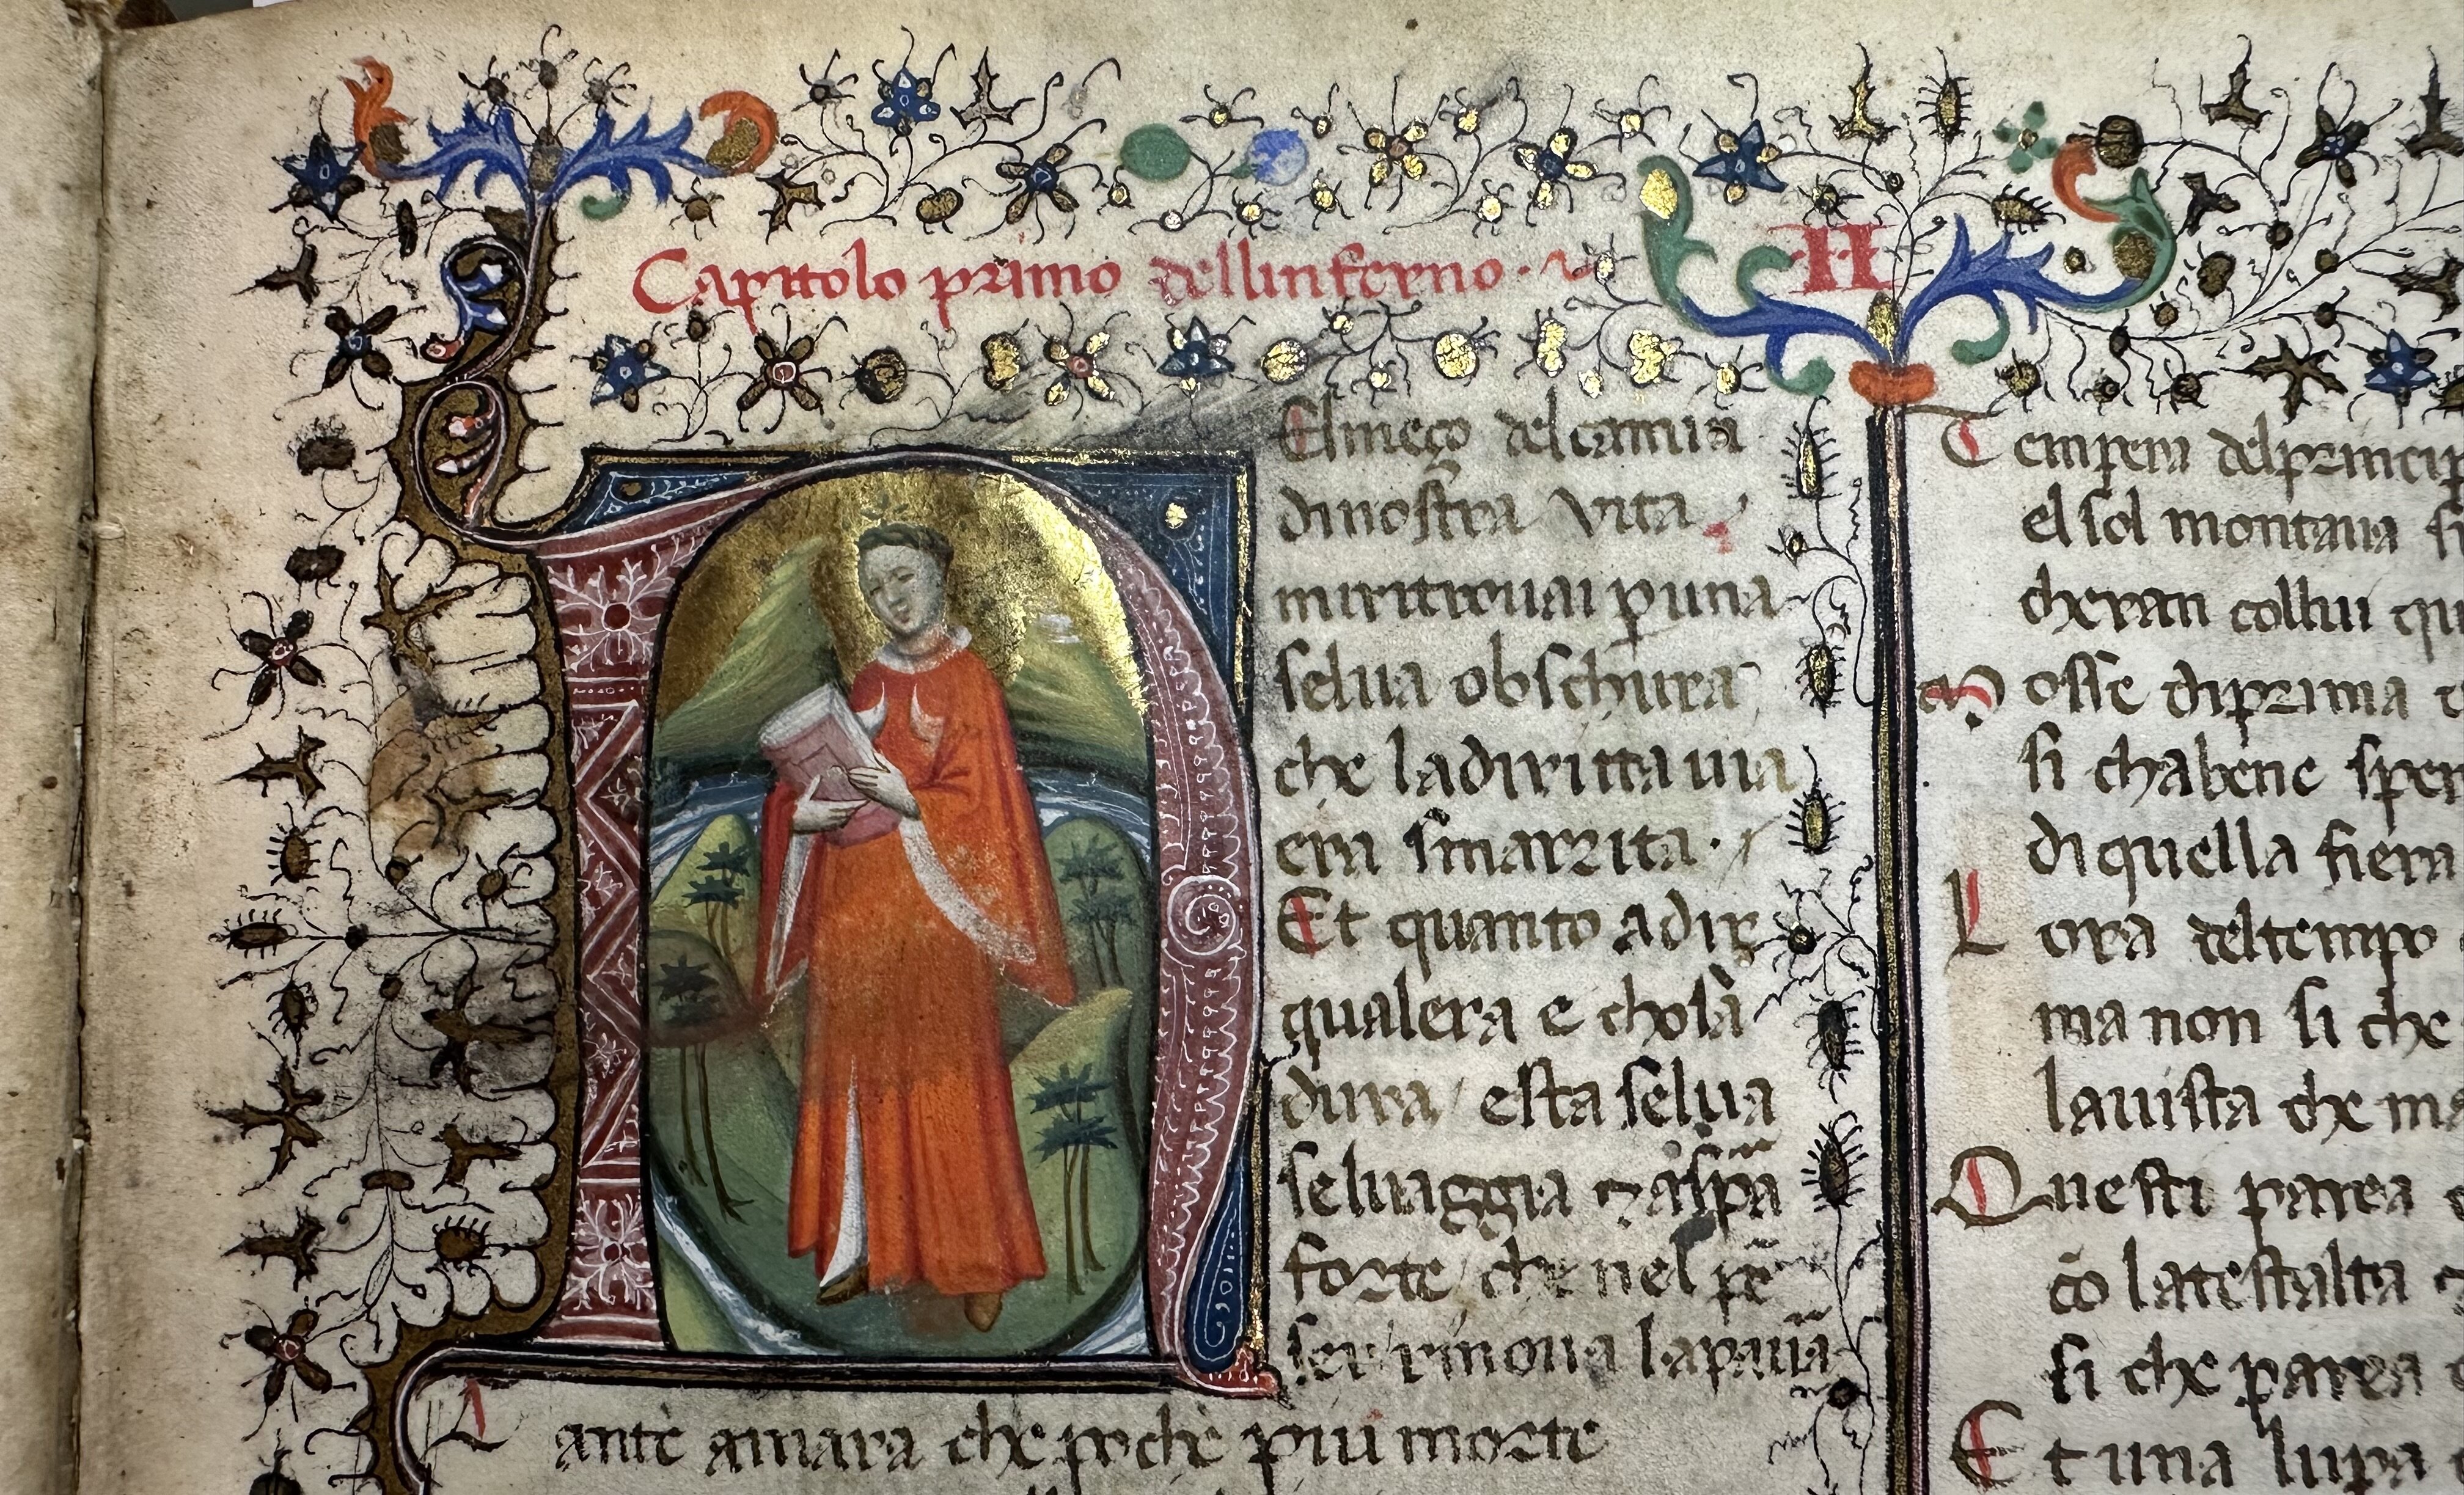 Capitolo primo dellinferno·
N
El meço del camin
di nostra vita
mi ritrouai p una
selua obschura
che la diritta uia
era smarrita·
Et quanto a dir
qualera e chosa
dura esta selua
seluaggia ⁊ asp̄a
forte che nel pē
ser rinoua la paura
Tante amara che poche piu morte
Tempera del princip
el sol montaua
cheran collui qu
Mosse di prima
si chabene sper
di quella fiera
Lora del tempo
ma non si che
la uista che m
Questi parea
cō la testalta
si che parea
Et una lupa